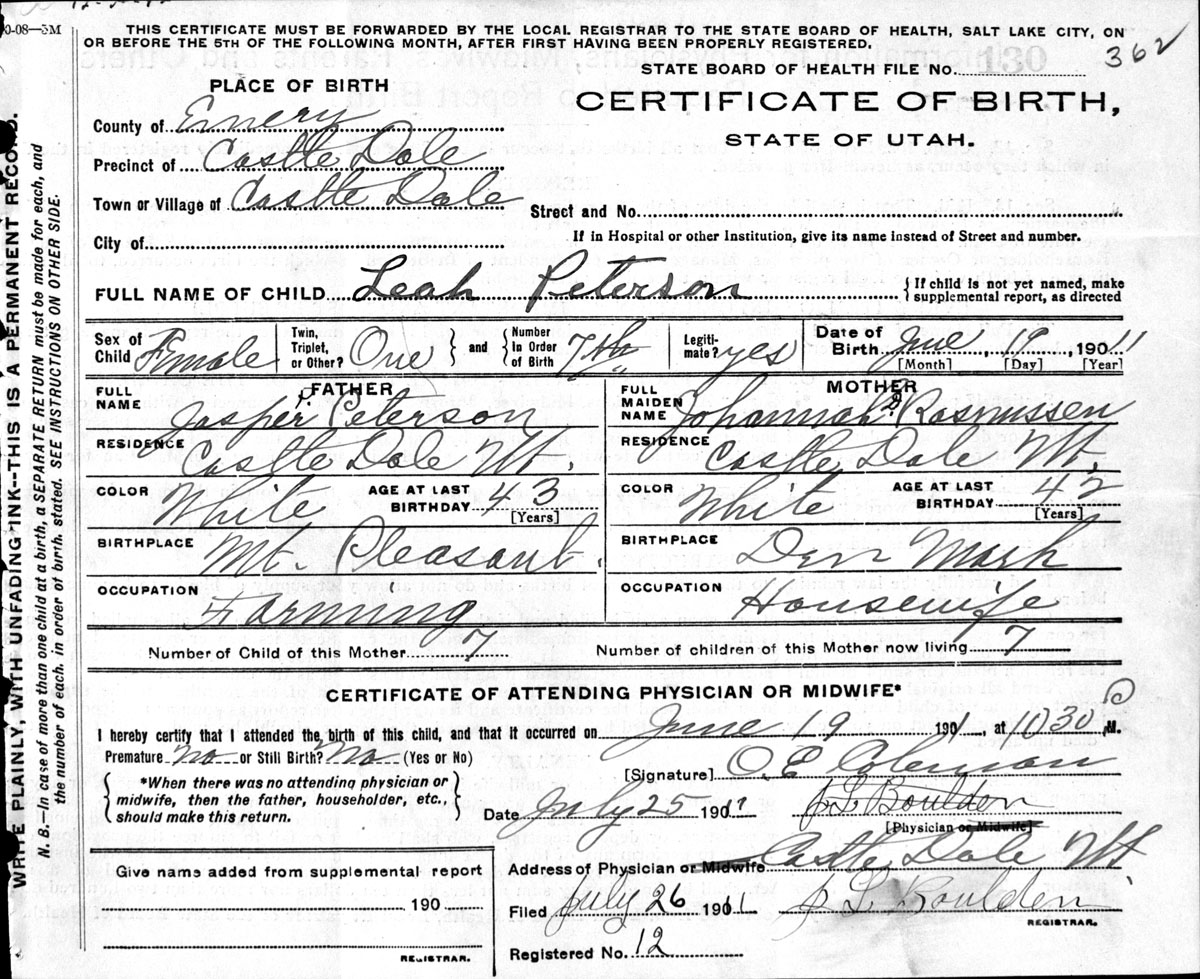 0-08—5M
THIS CERTIFICATE MUST BE FORWARDED BY THE LOCAL REGISTRAR TO THE STATE BOARD OF HEALTH, SALT LAKE CITY, ON
OR BEFORE THE 5TH OF THE FOLLOWING MONTH, AFTER FIRST HAVING BEEN PROPERLY REGISTERED.
362
STATE BOARD OF HEALTH FILE No. 130
PLACE OF BIRTH
CERTIFICATE OF BIRTH,
STATE OF UTAH.
County of Emery
Precinct of Castle Dale
Town or Village of Castle Dale
Street and No.
City of
If in Hospital or other Institution, give its name instead of Street and number.
FULL NAME OF CHILD Leah Peterson
{If child is not yet named, make
supplemental report, as directed
Sex of Child Female
Twin, Triplet, or Other? One } and { Number in Order of Birth 7th
Legiti-mate? yes
Date of Birth June 19, 190 11
[Month] [Day] [Year]
FATHER
FULL NAME Jasper P. Peterson
RESIDENCE Castle Dale Ut.
COLOR White
AGE AT LAST BIRTHDAY 43
[Years]
BIRTHPLACE Mt. Pleasant
OCCUPATION Farming
MOTHER
FULL MAIDEN NAME Johannah Rasmussen
RESIDENCE Castle Dale Ut.
COLOR White
AGE AT LAST BIRTHDAY 42
[Years]
BIRTHPLACE Den Mark
OCCUPATION Housewife
Number of Child of this Mother 7
Number of children of this Mother now living 7
CERTIFICATE OF ATTENDING PHYSICIAN OR MIDWIFE*
I hereby certify that I attended the birth of this child, and that it occurred on June 19 1901, at 10 30 P M.
Premature no or Still Birth? no (Yes or No)
{ *When there was no attending physician or
midwife, then the father, householder, etc.,
should make this return. }
[Signature] O E Coleman
Date July 25 1901 J L Boulden
[Physician or Midwife]
Address of Physician or Midwife Castle Dale Ut
Give name added from supplemental report
190
REGISTRAR.
Filed July 26 1901 J L Boulden
REGISTRAR.
Registered No. 12
WRITE PLAINLY, WITH UNFADING INK--THIS IS A PERMANENT RECORD.
N. B.—In case of more than one child at a birth, a SEPARATE RETURN must be made for each, and
the number of each, in order of birth, stated. SEE INSTRUCTIONS ON OTHER SIDE.